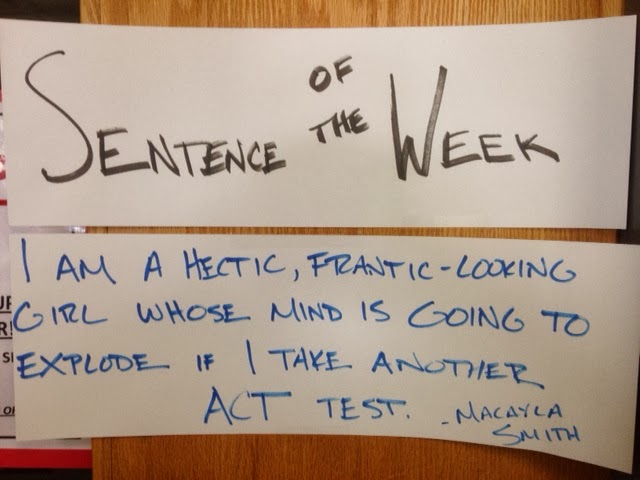 SENTENCE OF THE WEEK
I AM A HECTIC, FRANTIC-LOOKING
GIRL WHOSE MIND IS GOING TO
EXPLODE IF I TAKE ANOTHER
ACT TEST. -MACAYLA
SMITH